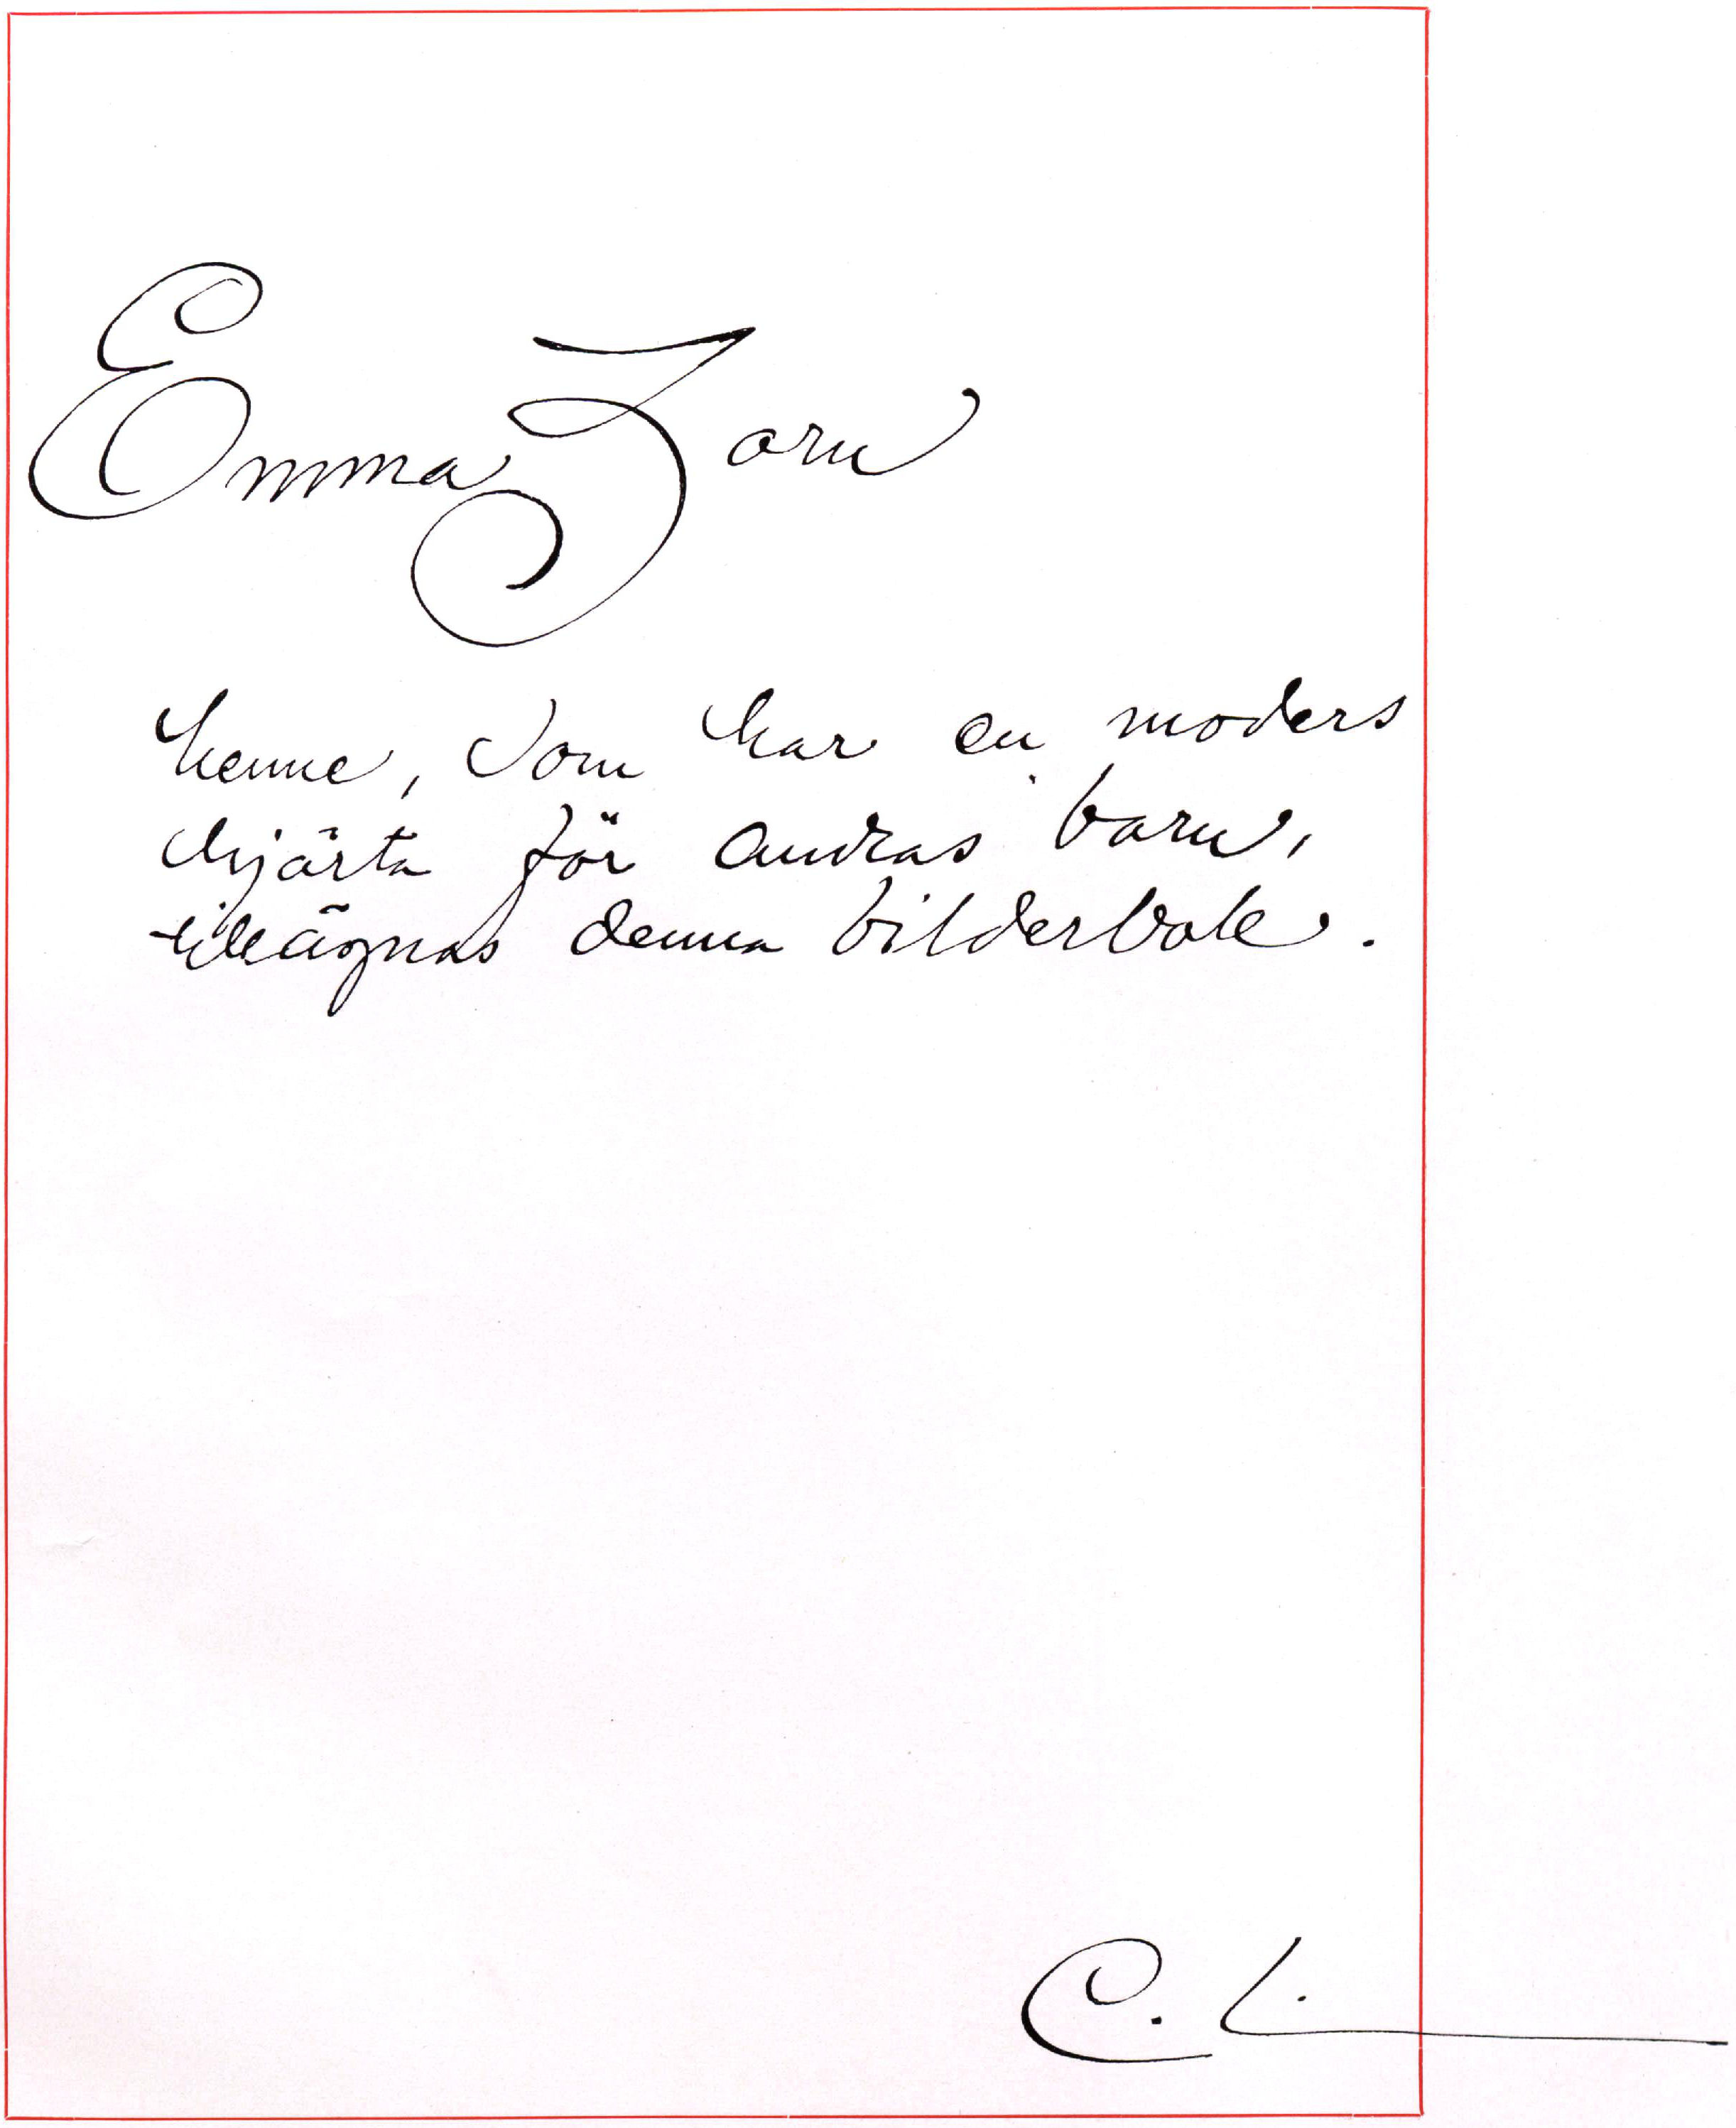 Emma Zorn
henne, som har en moders
hjärta för andras barn,
tillägnas denna bilderbok.
C. L.